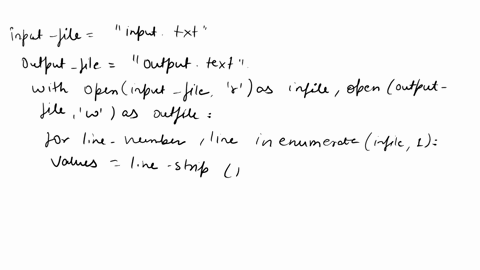 input_file = "input. txt"
output_file = "output. text"
with open(input_file, 'r') as infile, open(output_
file, 'w') as outfile:
for line_number, line in enumerate(infile, 1):
values = line.strip (,